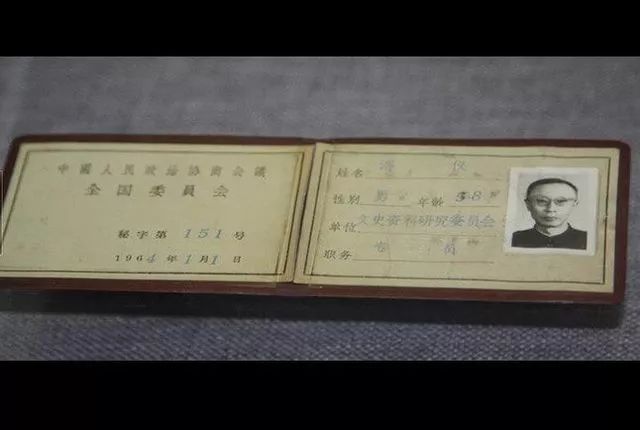 中國人民政治協商会議
全国委員会
秘字第 151 号
1964 年 1月1日
姓名 溥 仪
性别 男 年龄 58岁
单位 文史资料研究委员会
职务 专